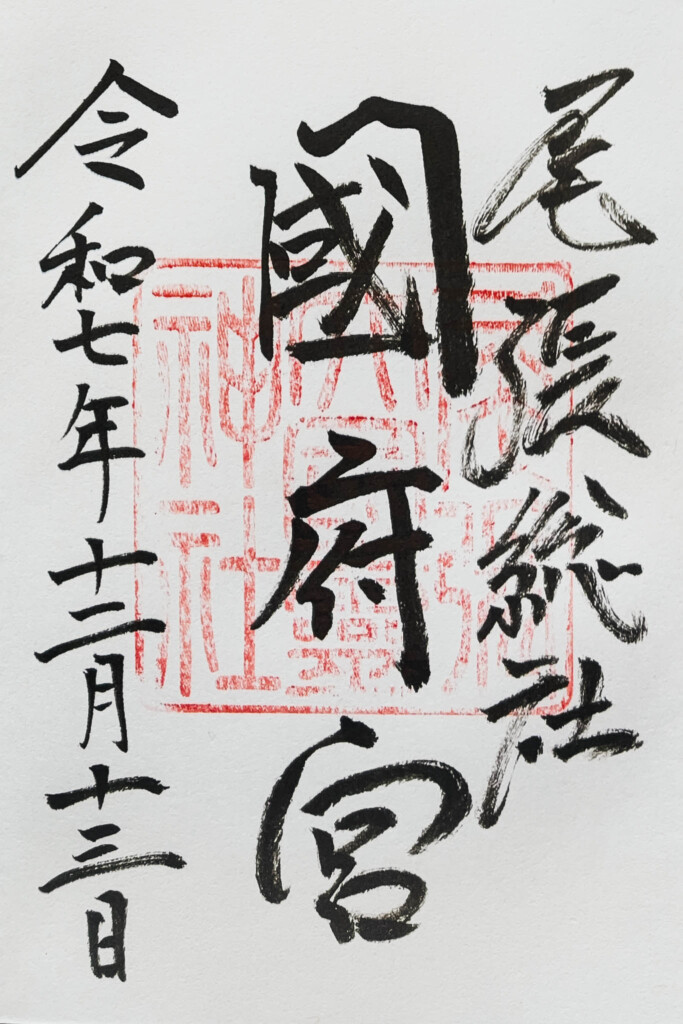 尾張総社
國府宮
令和七年十二月十三日